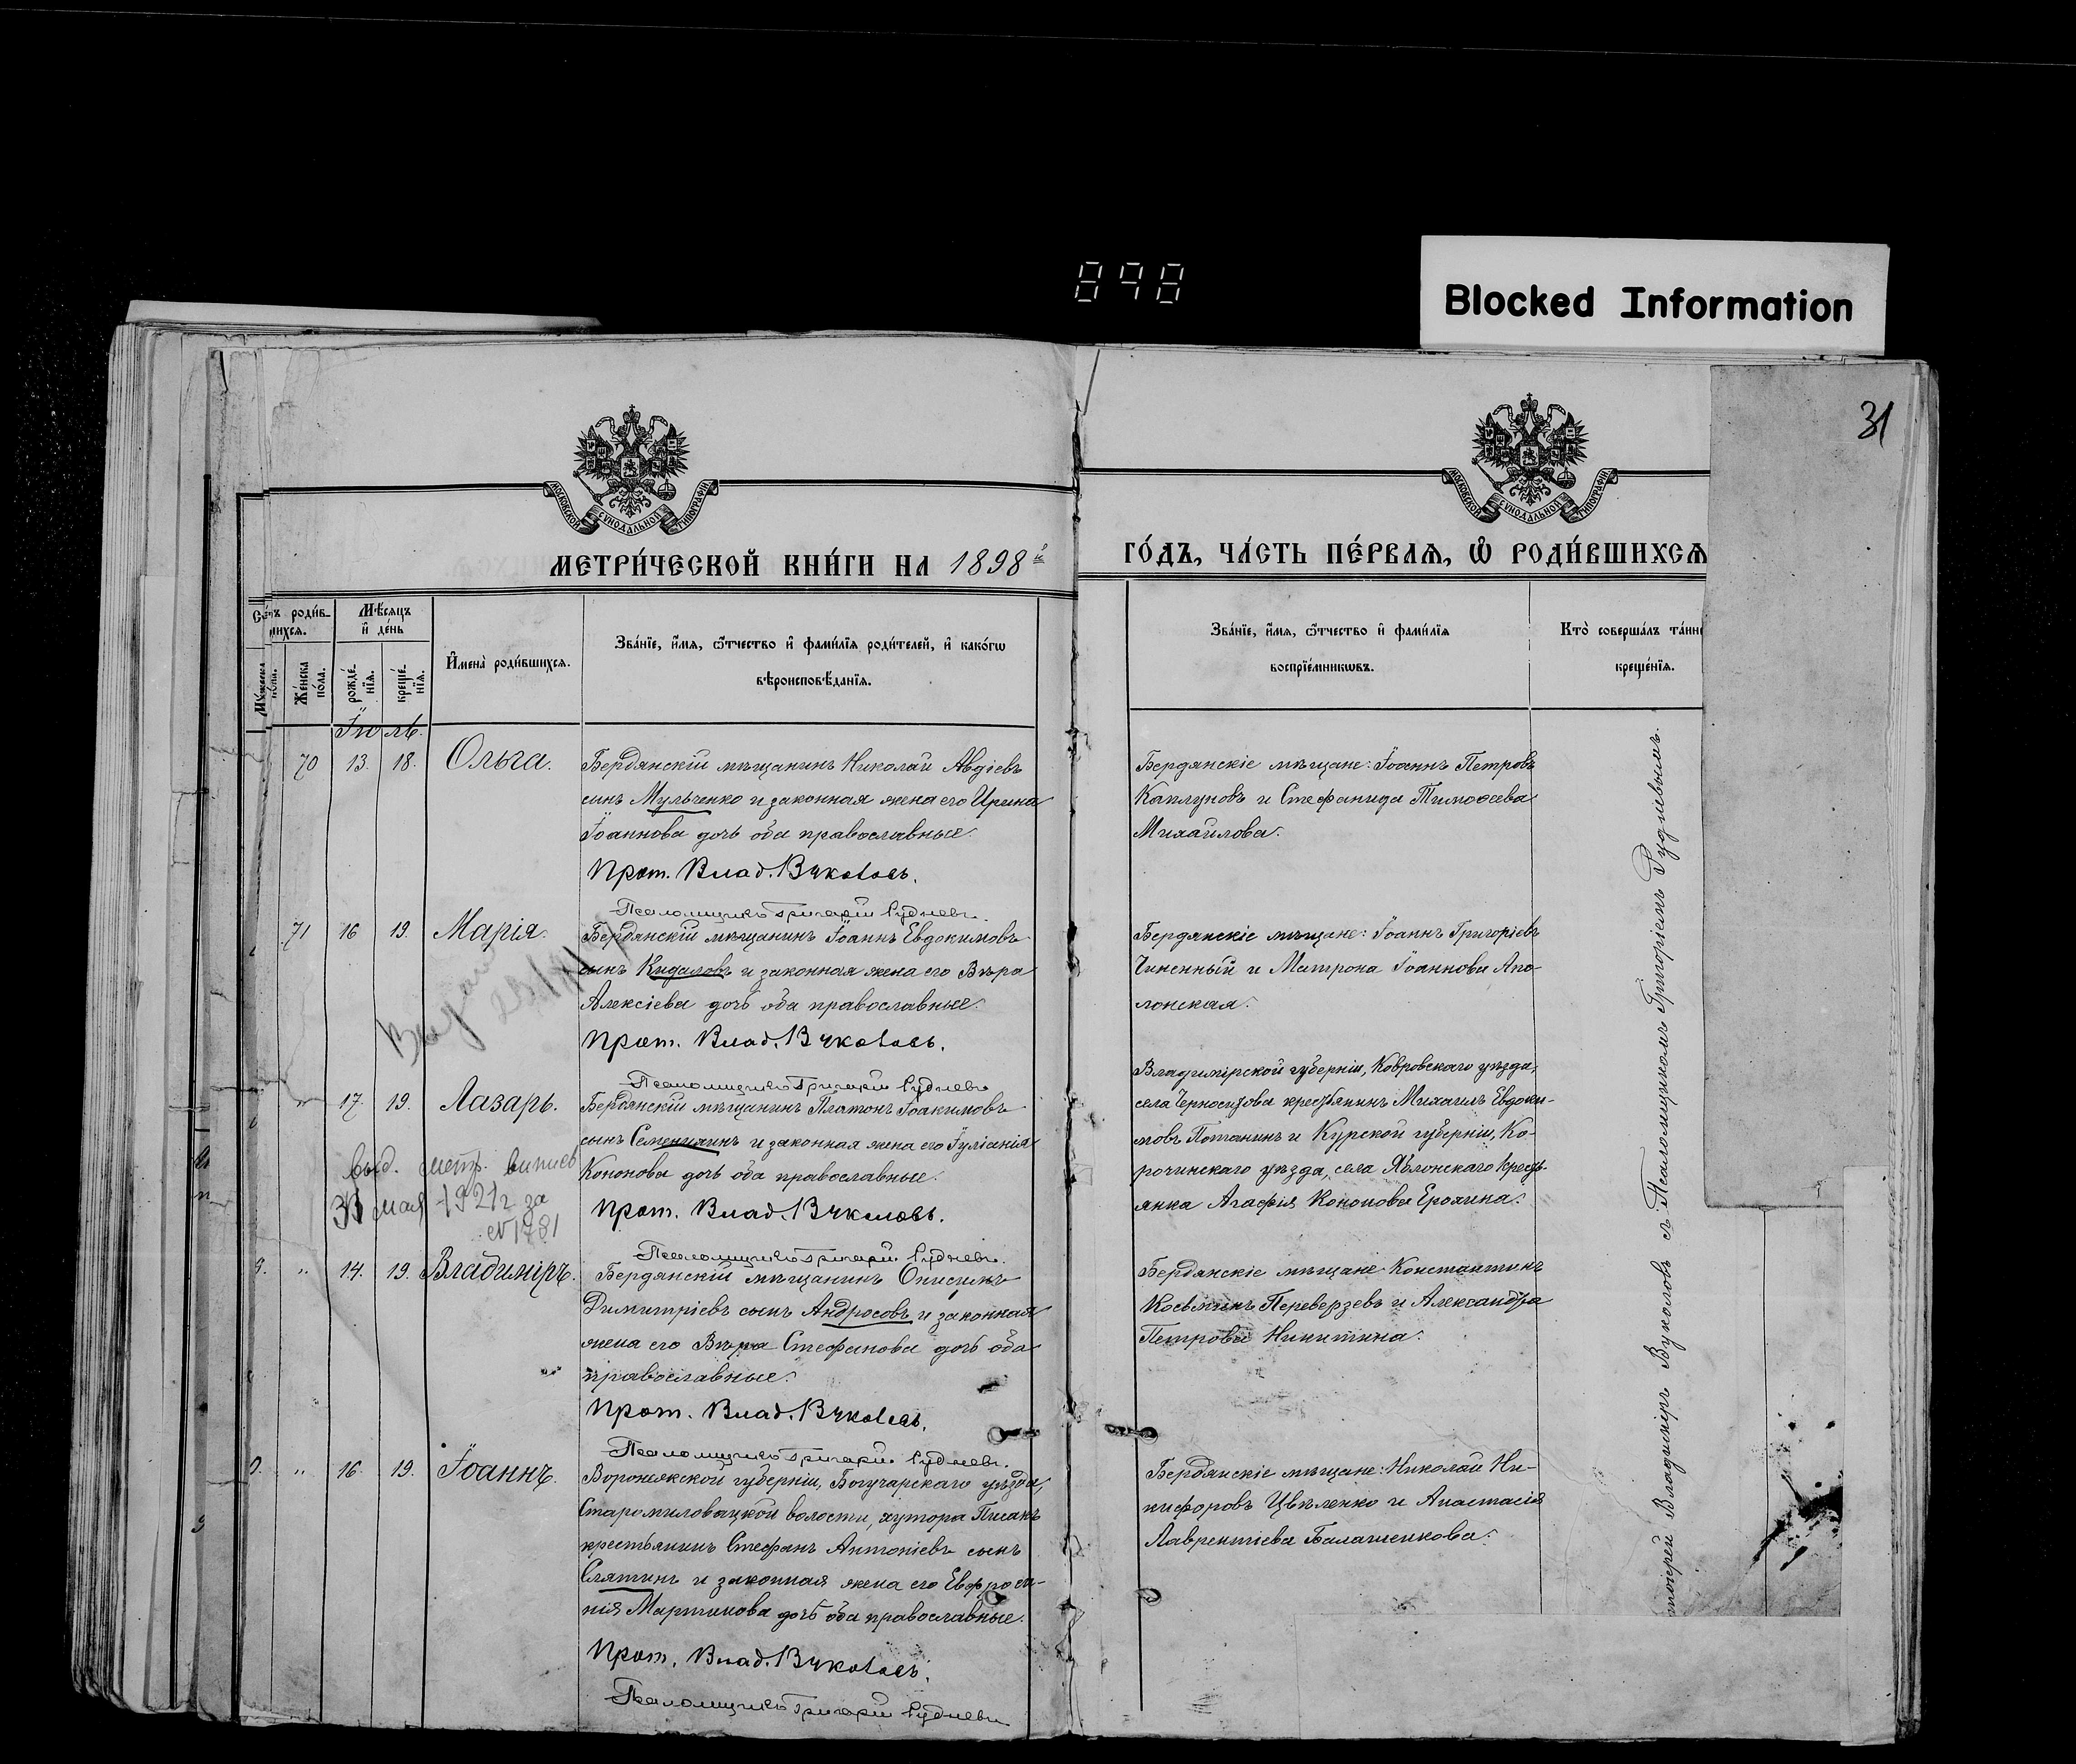 898
Blocked Information
31
МОСКОВСКОЙ СУНОДАЛЬНОЙ ТИПОГРАФІИ
МОСКОВСКОЙ СУНОДАЛЬНОЙ ТИПОГРАФІИ
МЕТРИ́ЧЕСКОЙ КНИ́ГИ НА 1898 й
ГО́ДЪ, ЧА́СТЬ ПЕ́РВАѦ, Ѽ РОДИ́ВШИХСѦ
роди́в-
шихсѧ.
Мѣ́сѧцъ
и҆ де́нь
Же́нска
по́ла.
рожде́-
нїѧ.
креще́-
нїѧ.
И҆мена̀ роди́вшихсѧ.
Зва́нїе, и҆́мѧ, ѻ҆́тчество и҆ фами́лїѧ роди́телей, и҆ како́гѡ
вѣроисповѣ́данїѧ.
Зва́нїе, и҆́мѧ, ѻ҆́тчество и҆ фами́лїѧ
воспрїе́мникѡвъ.
Кто̀ соверша́лъ
креще́нїѧ.
Іюль.
70 13. 18. Ольга.
Бердянскій мѣщанинъ Николай Авдіевъ
сынъ Мульченко и законная жена его Ирина
Іоаннова дочь оба православные.
Прот. Влад. Вуколовъ.
Псаломщикъ Григорій Рудневъ.
Бердянскіе мѣщане: Іоаннъ Петровъ
Каплуновъ и Стефанида Тимоѳеева
Михайлова.
71 16 19. Марія.
Бердянскій мѣщанинъ Іоаннъ Евдокимовъ
сынъ Кидаловъ и законная жена его Вѣра
Алексіева дочь оба православные.
Прот. Влад. Вуколовъ.
Псаломщикъ Григорій Рудневъ
Бердянскіе мѣщане: Іоаннъ Григоріевъ
Чиненный и Матрона Іоаннова Апо-
лонская.
" 17. 19. Лазарь.
выд. метр. выпись
31 мая 1921г за
№ 1781
Бердянскій мѣщанинъ Платонъ Іоакимовъ
сынъ Семенихинъ и законная жена его Іуліанія
Кононова дочь оба православные.
Прот. Влад. Вуколовъ.
Псаломщикъ Григорій Рудневъ.
Владимірской губерніи, Ковровскаго уѣзда,
села крестьянинъ Михаилъ Евдоки-
мовъ Потанинъ и Курской губерніи, Ко-
рочинскаго уѣзда, села Яблонскаго кресть-
янка Агафія Кононова Ерохина.
9. " 14. 19. Владиміръ.
Бердянскій мѣщанинъ Онисимъ
Димитріевъ сынъ Андросовъ и законная
жена его Вѣра Стефанова дочь оба
православные.
Прот. Влад. Вуколовъ.
Псаломщикъ Григорій Рудневъ.
Бердянскіе мѣщане Константинъ
Косьминъ Переверзевъ и Александра
Петрова Никитина.
" 16. 19. Іоаннъ.
Воронежской губерніи, Богучарскаго уѣзда,
Старомиловацкой волости, хутора
крестьянинъ Стефанъ Антоніевъ сынъ
Слятинъ и законная жена его Евфроси-
нія Мартинова дочь оба православные.
Прот. Влад. Вуколовъ.
Псаломщикъ Григорій Рудневъ
Бердянскіе мѣщане: Николай Ни-
кифоровъ Цвѣленко и Анастасія
Лаврентіева Балашенкова.
Владиміръ Вуколовъ съ Псаломщикомъ Григоріемъ Рудневымъ.